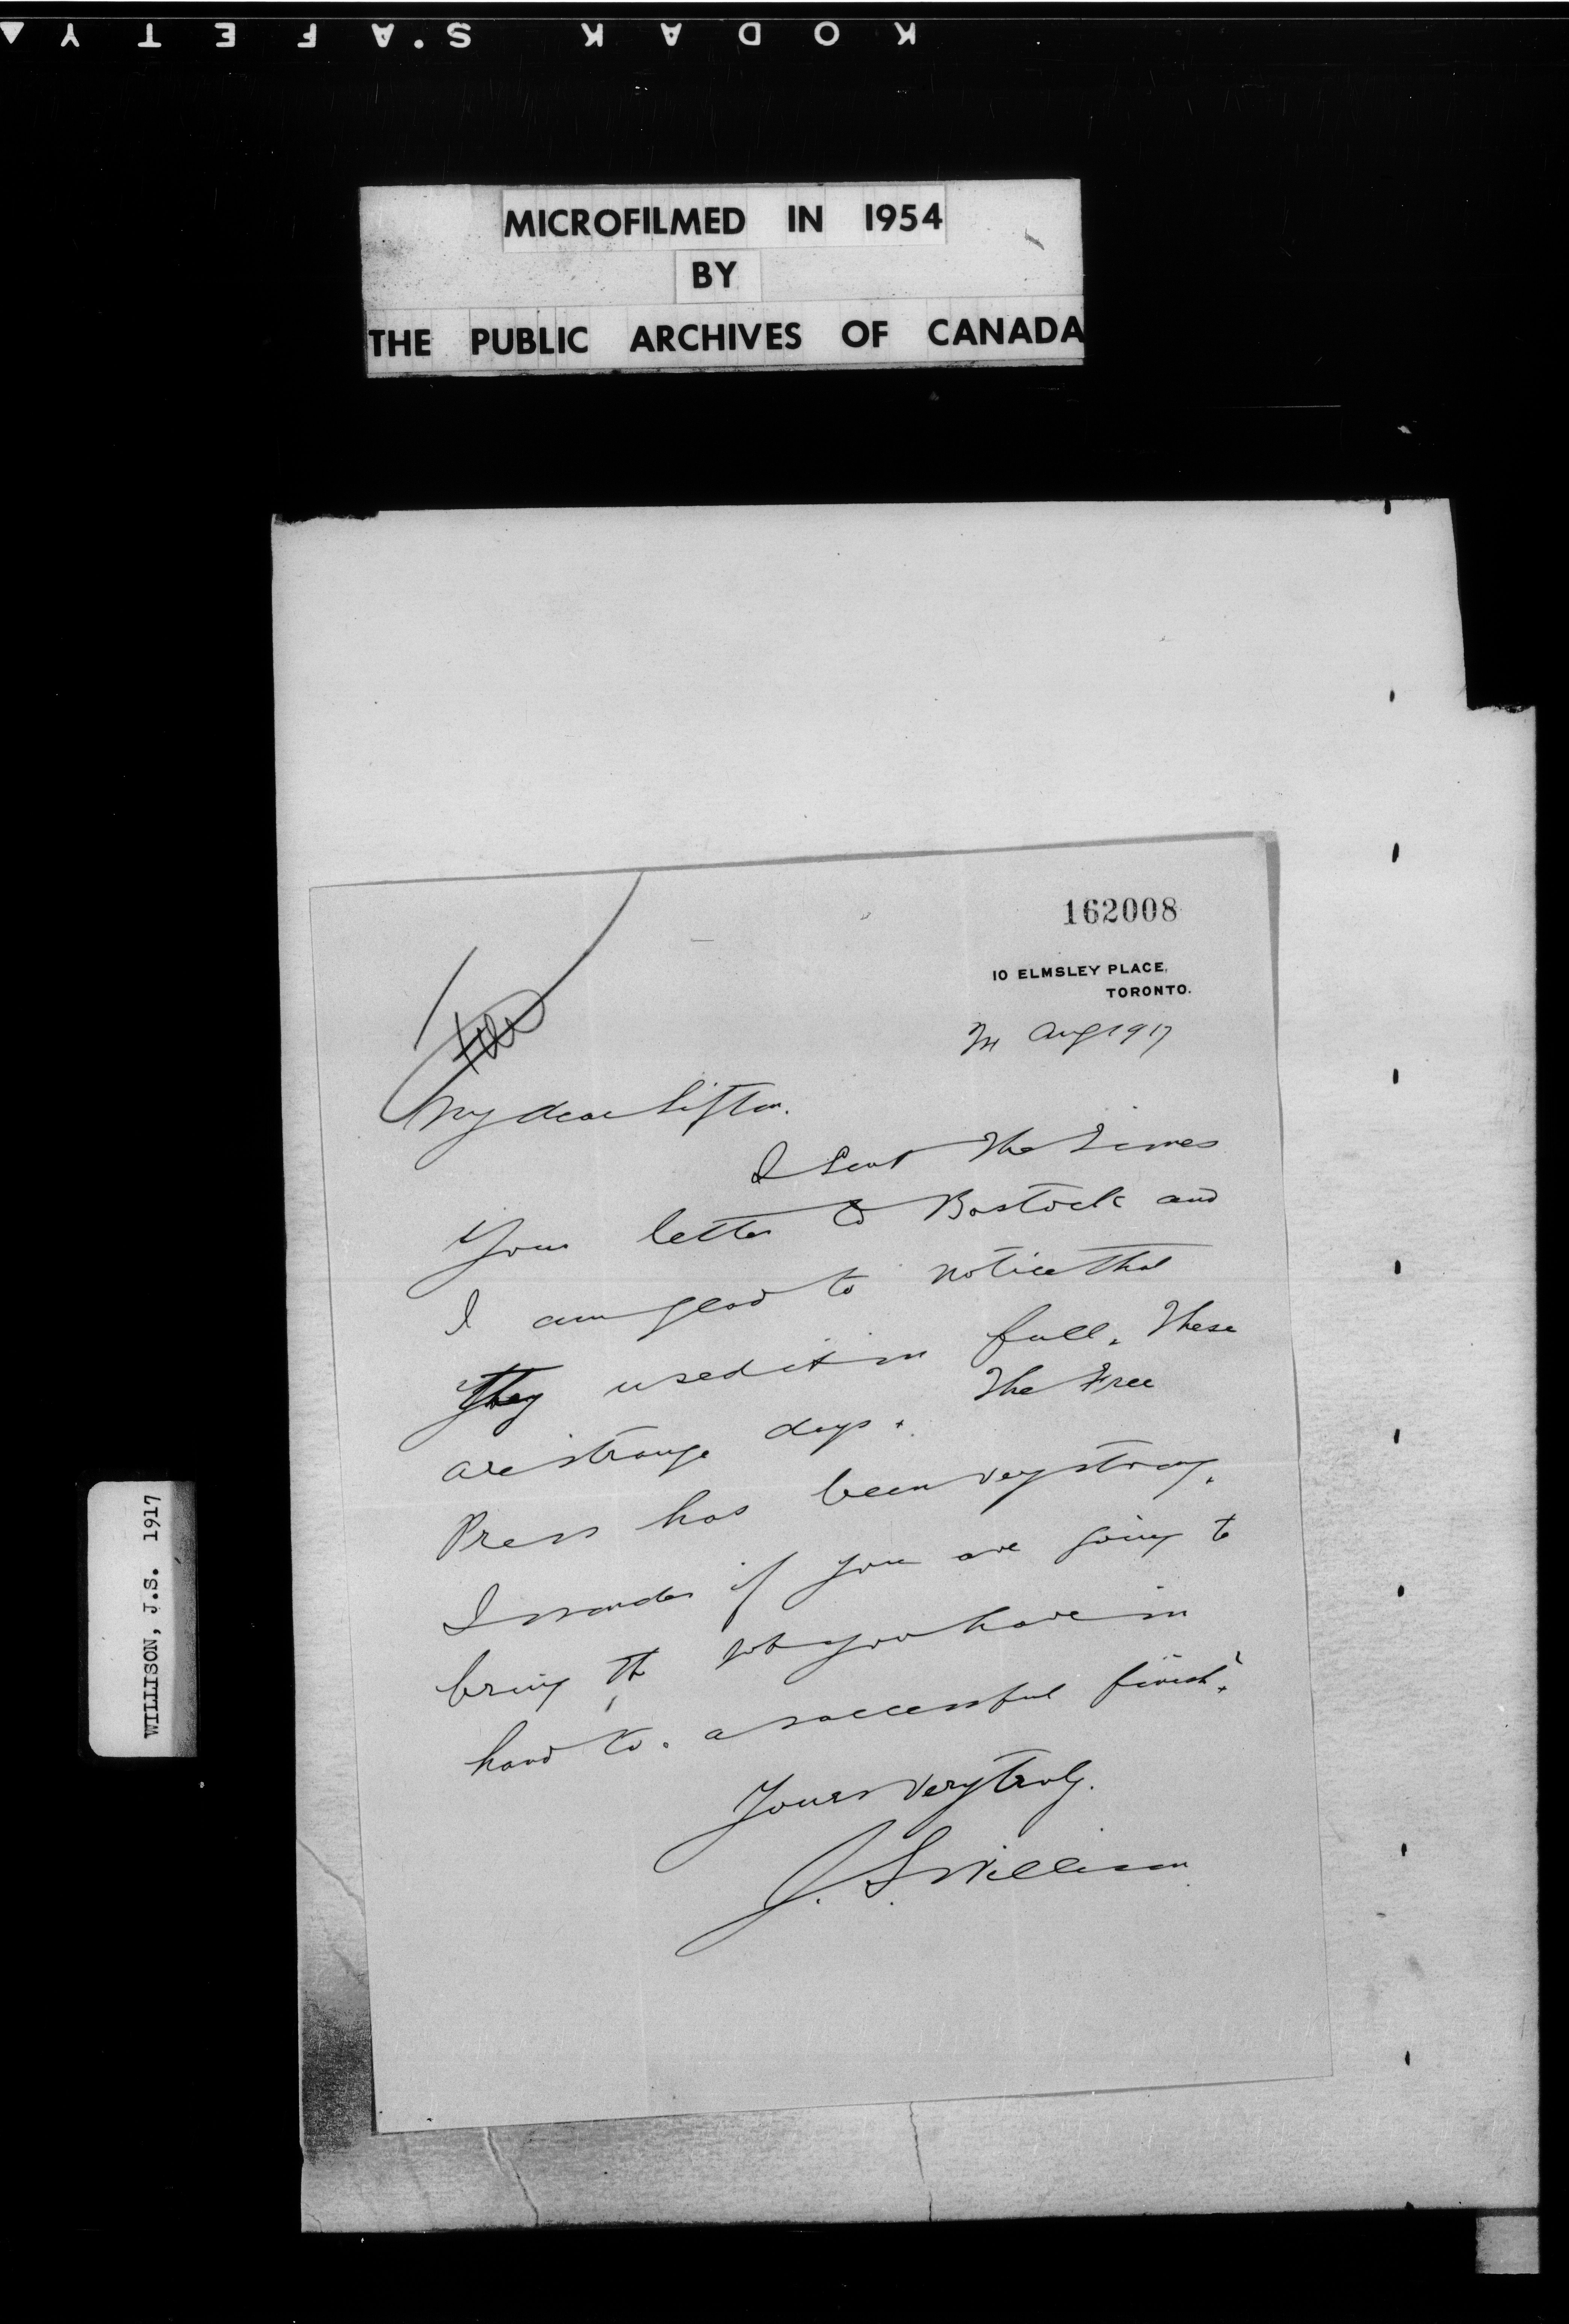 KODAK SAFETY
MICROFILMED IN 1954
BY
THE PUBLIC ARCHIVES OF CANADA
162008
10 ELMSLEY PLACE,
TORONTO.
Aug 1917
My dear Sifton.
I sent The Times
your letter to Bostock and
I am glad to notice that
they used it in full. These
are strange days. The Free
Press has been very strong.
I wonder if you are going to
bring the job you have in
hand to a successful finish?
Yours very truly.
J. S. Willison
WILLISON, J.S. 1917